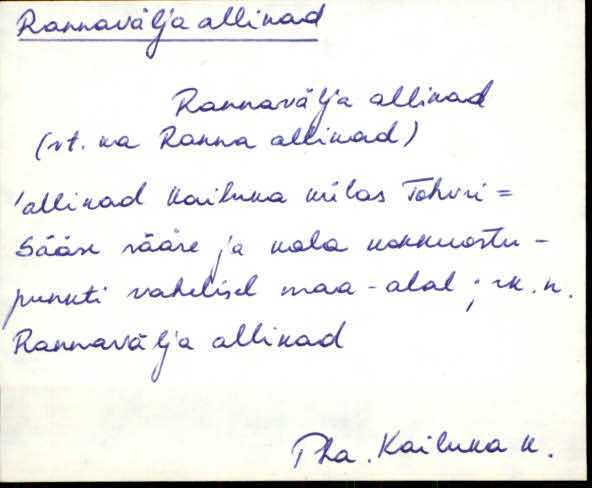 Rannavälja allikad
Rannavälja allikad
(vt. ka Ranna allikad)
'allikad Kailuka külas Tohvri=
Sääse sääre ja kala kokkuostu-
punkti vahelisel maa-alal; rk. n.
Rannavälja allikad
Pha. Kailuka k.